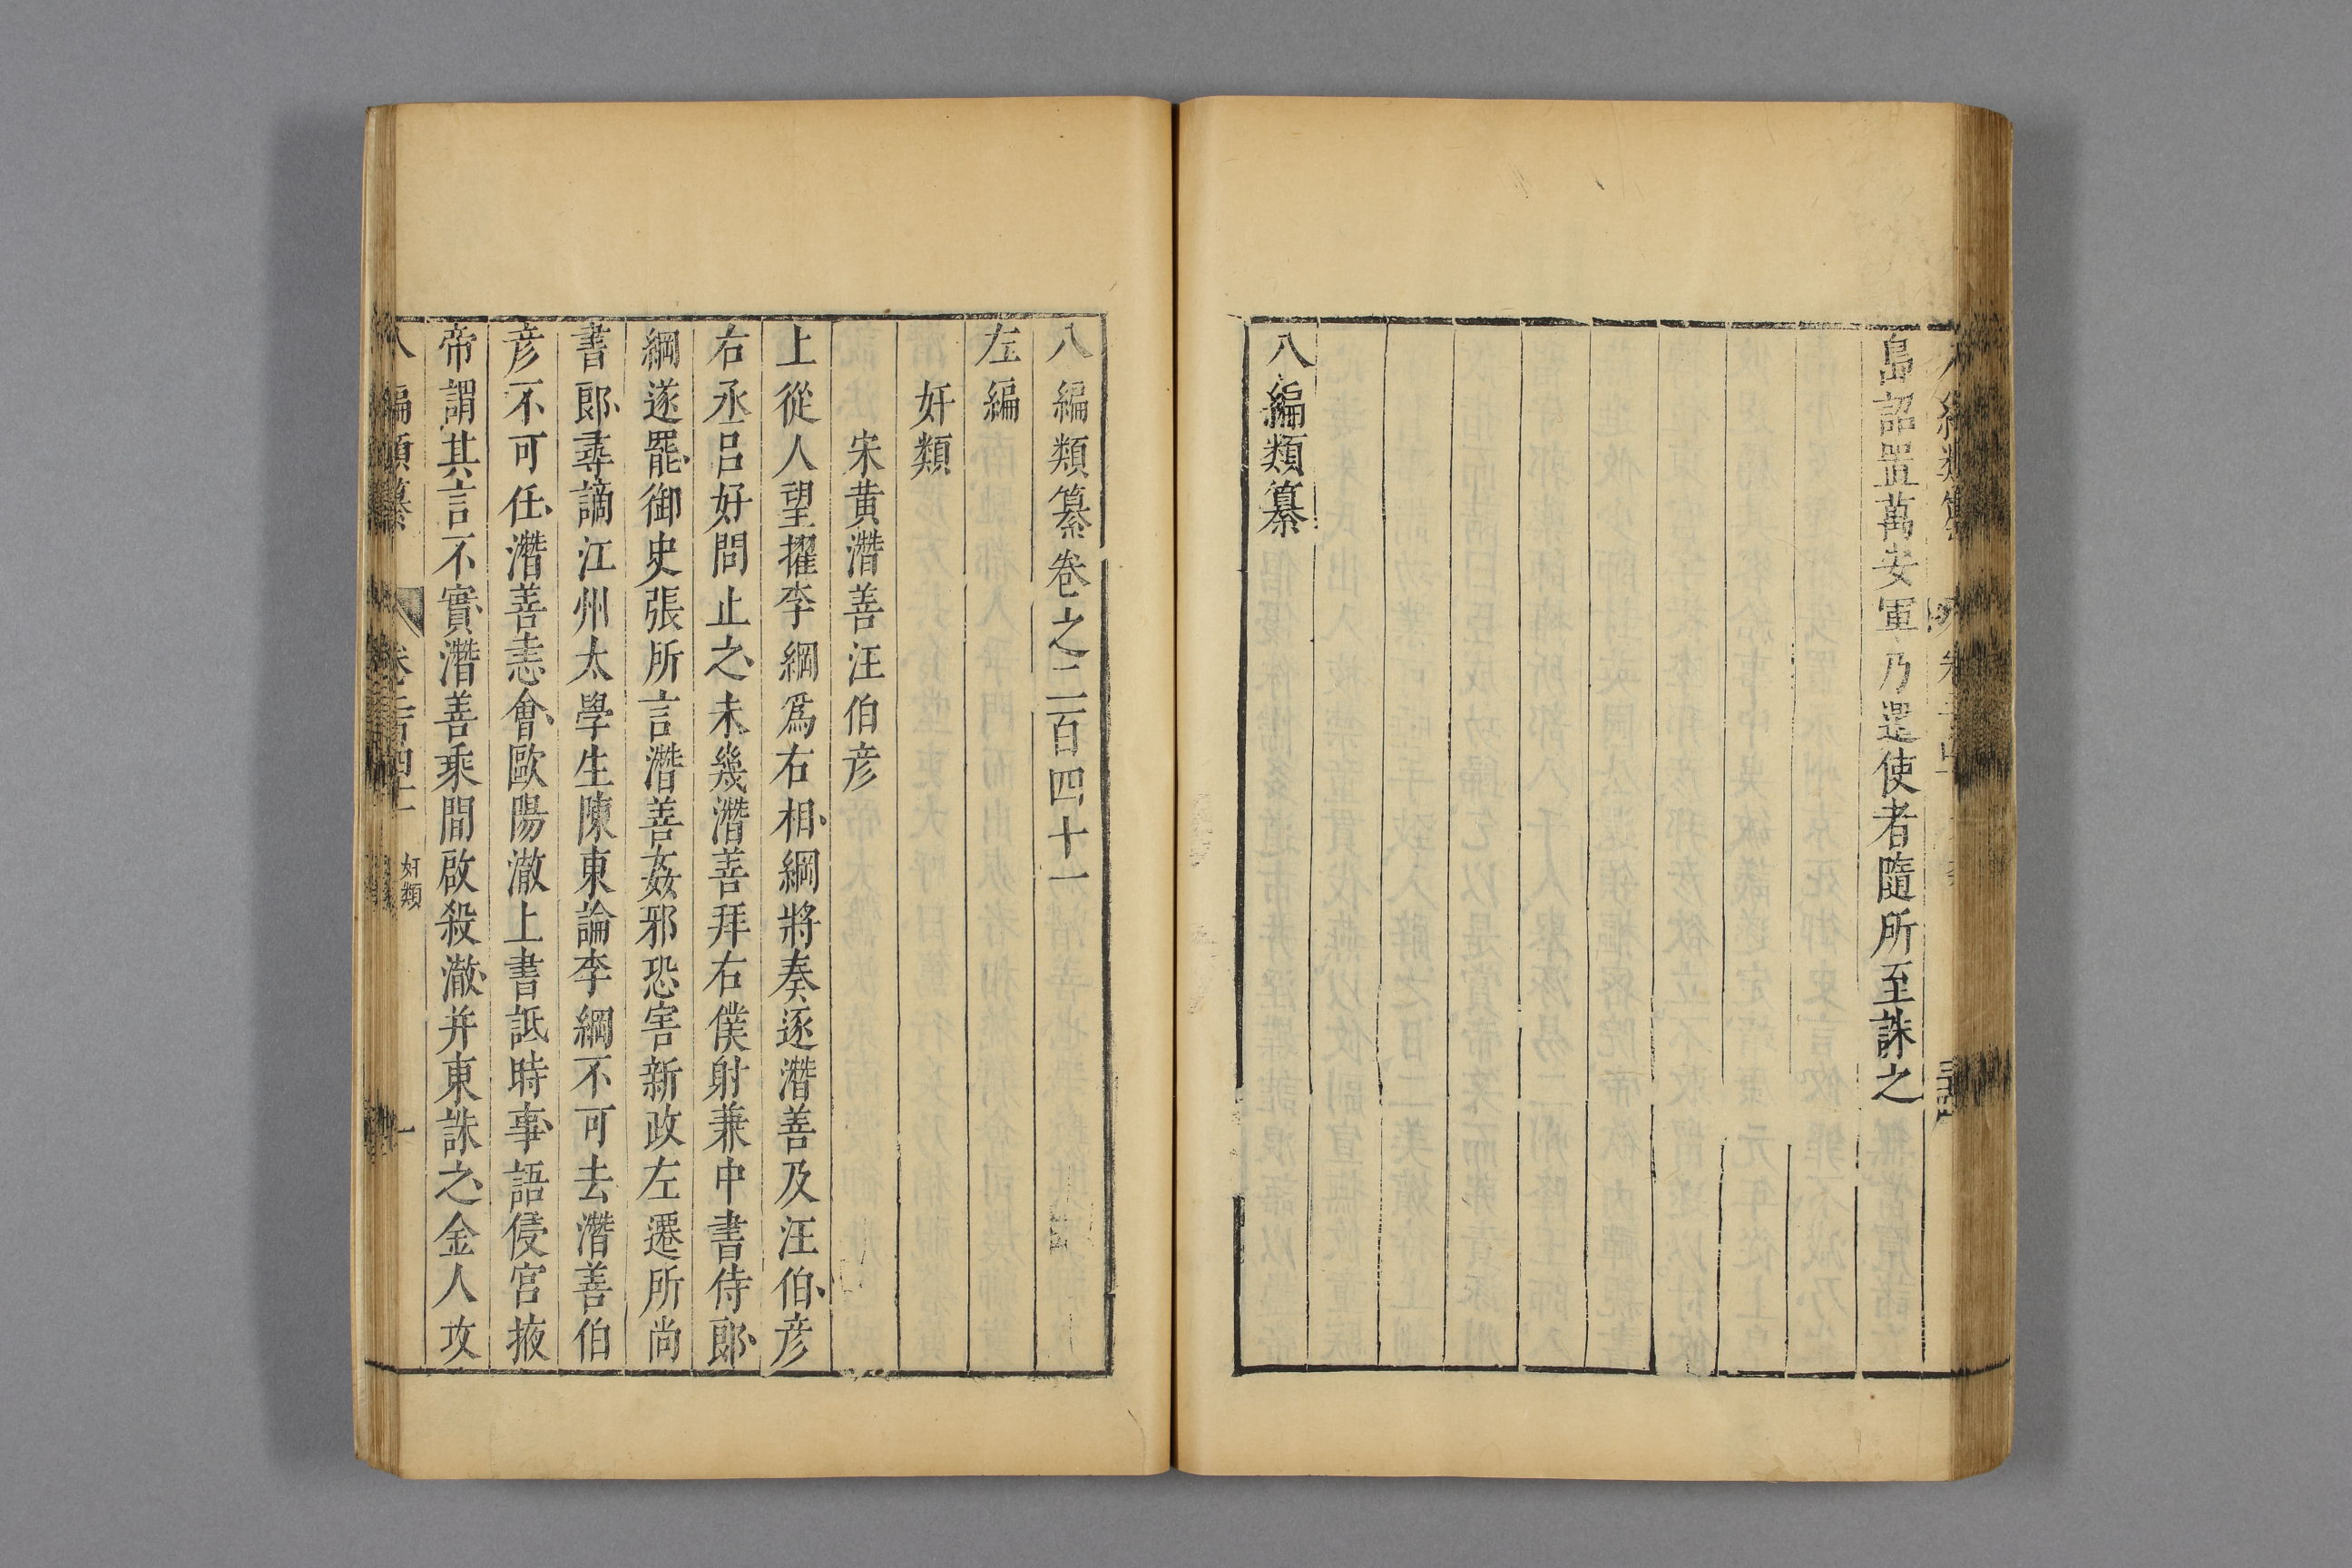 島詔置萬安軍乃遣使者隨所至誅之
八編類纂
八編類纂卷之二百四十一
左編
奸類
宋黃潛善汪伯彦
上從人望擢李綱爲右相綱將奏逐潛善及汪伯彦
右丞呂好問止之未幾潛善拜右僕射兼中書侍郎
綱遂罷御史張所言潛善姦邪恐害新政左遷所尚
書郎尋謫江州太學生陳東論李綱不可去潛善伯
彦不可任潛善恚會歐陽澈上書詆時事語侵宮掖
帝謂其言不實潛善乘間啟殺澈并東誅之金人攻
八編類纂 卷二百四十一 奸類 一